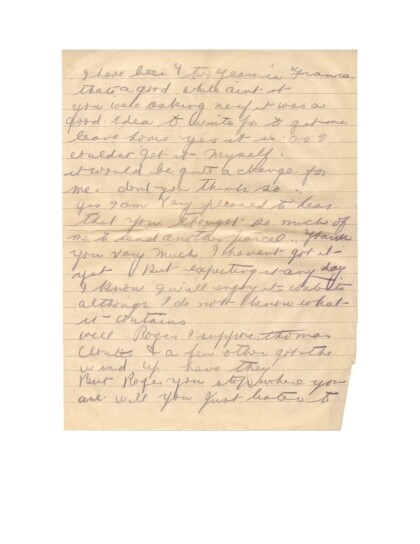 I have been 4 two years in France
thats a good while aint it
you were asking me if it was a
good Idea to write for to get me
leave home yes it is as I
couldnt get it myself.
it would be quit a change for
me. dont you think so..
yes I am very pleased to hear
that you thought so much of
me to send another parcel.. Thank
you very much I havent got it
yet But expecting it any day
I know I will enjoy its contents
although I do not know what
it contains
well Roger I suppose thomas
& a few others got the
wind up have they
But Roger you stop where you
are will you Just listen to